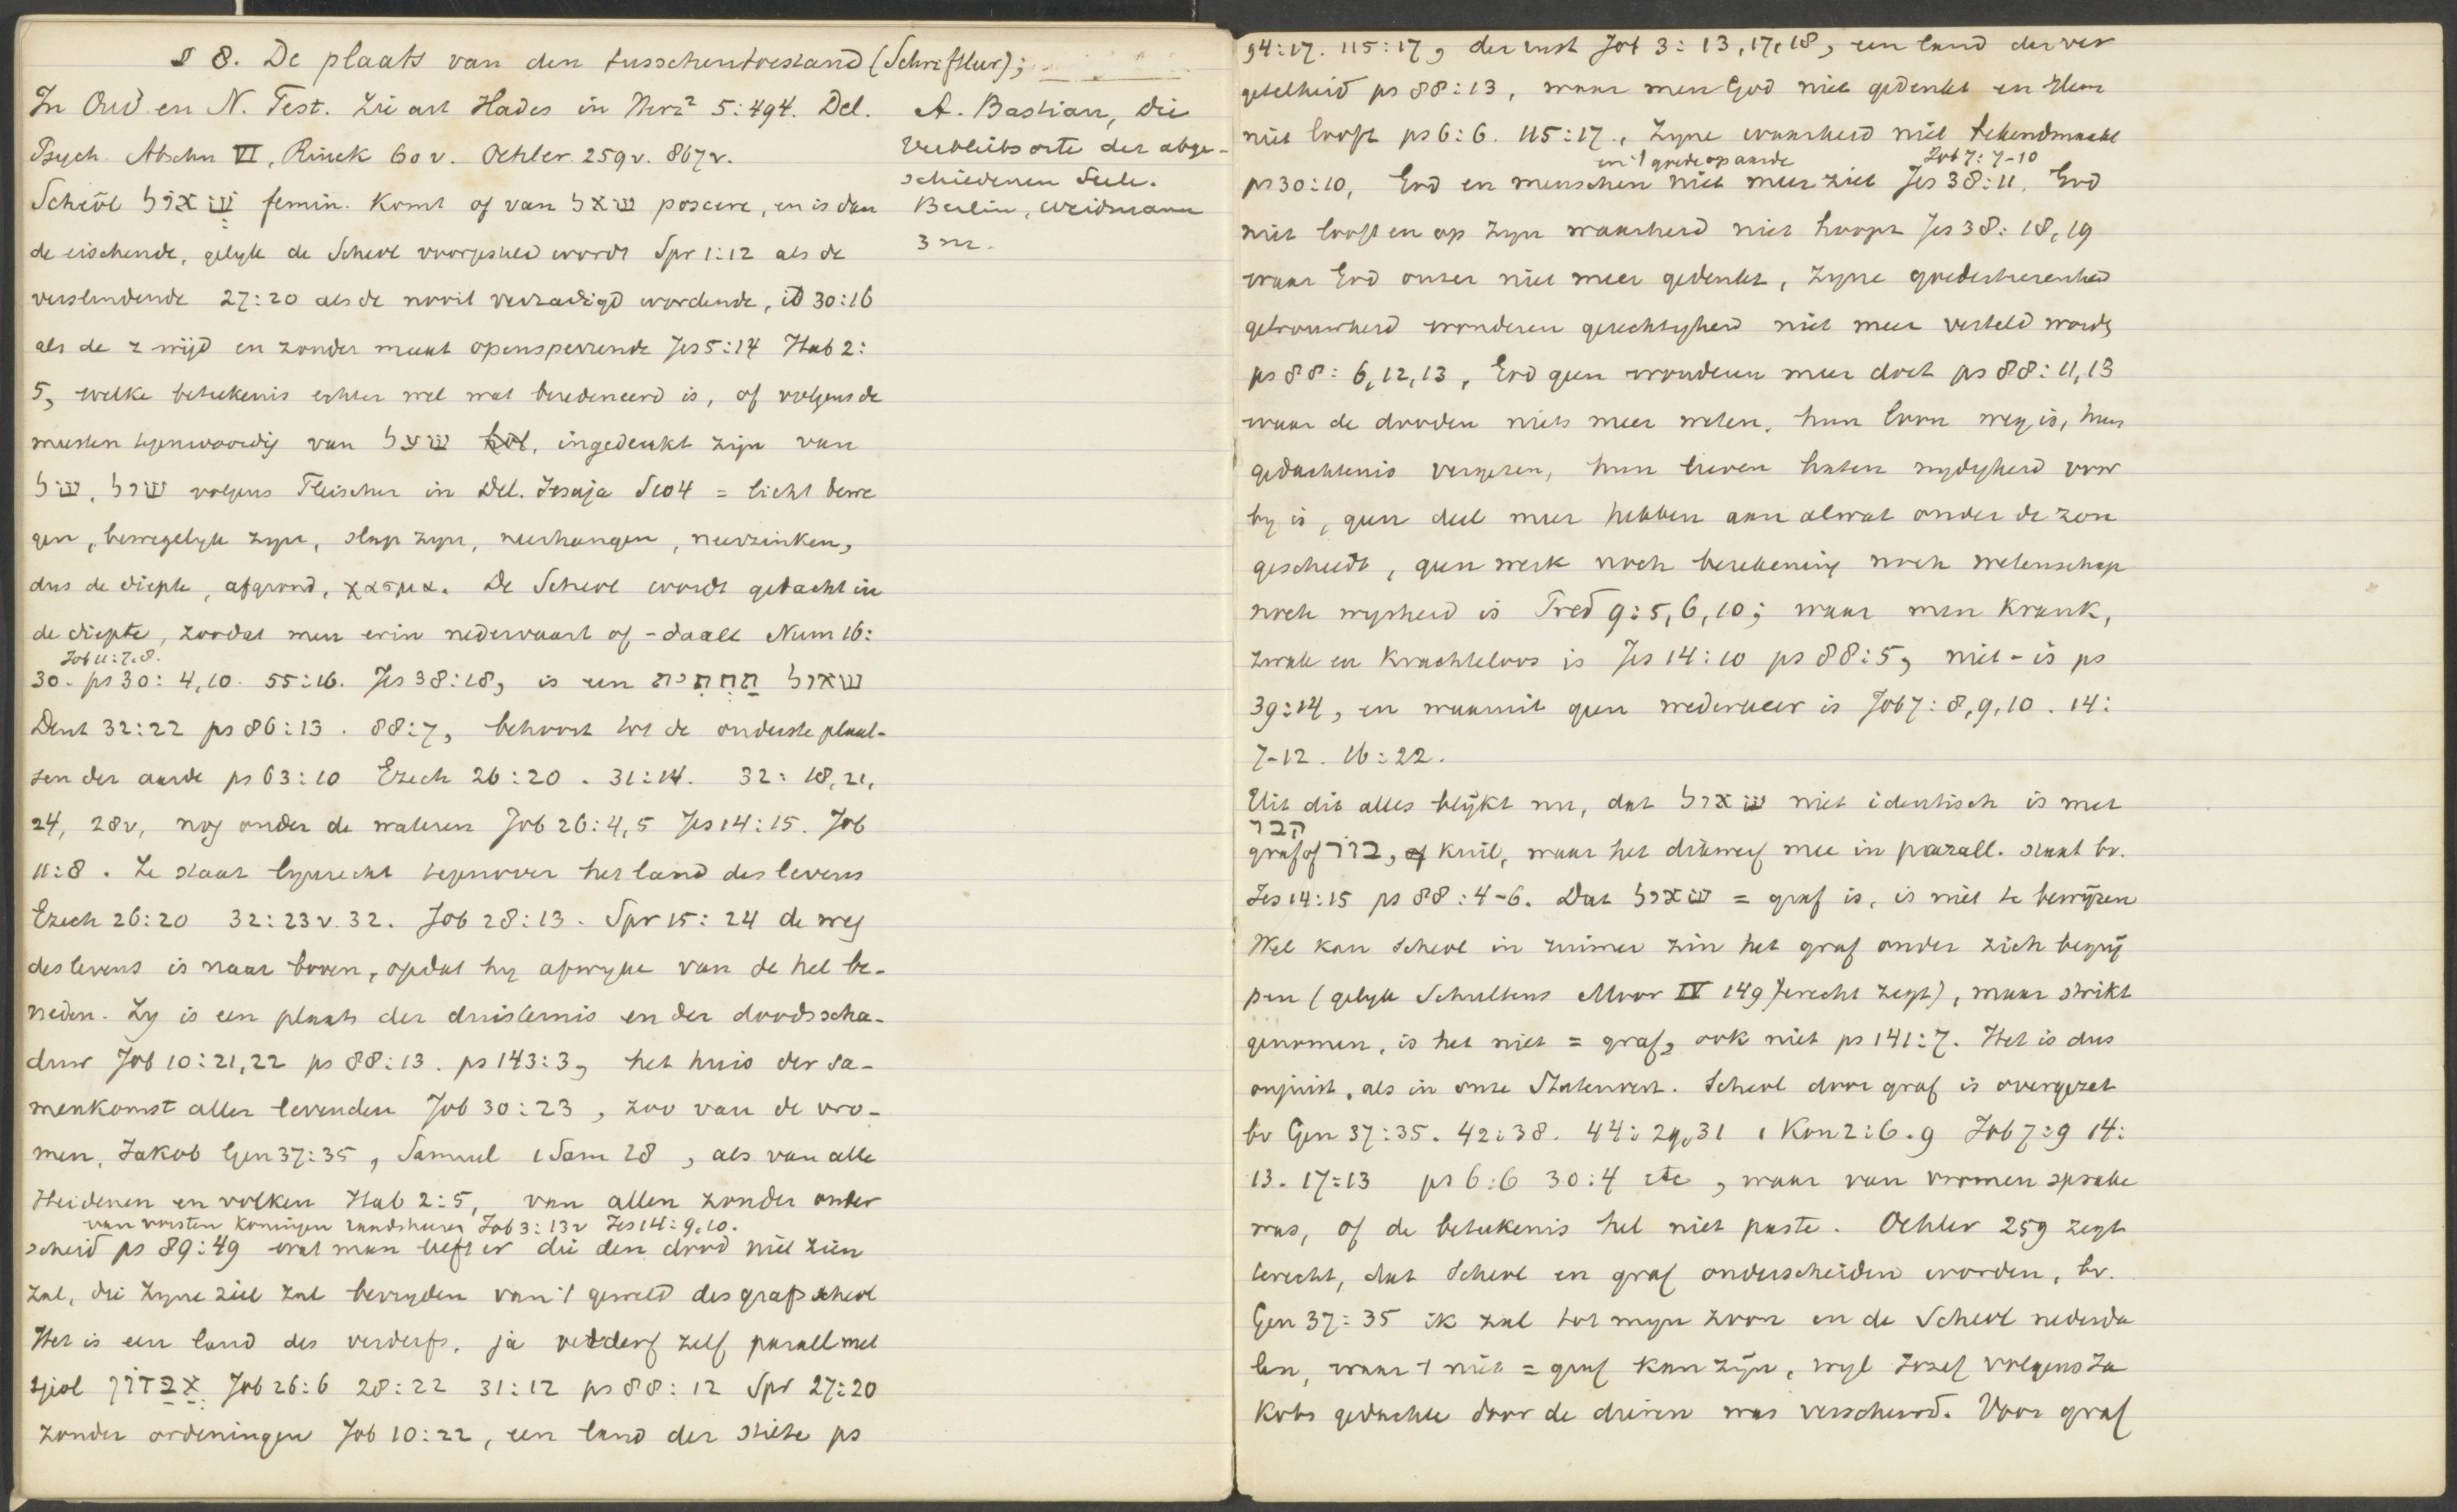 § 8. De plaats van den tusschentoestand (Schriftleer);
In Oud en N. Test. Zie art Hades in Herz² 5:494. Del.
Psych. Abschn VI, Rinck 60 v. Oehler 259 v. 867 v.
Scheôl שְׁאוֹל femin. Komt of van שאל poscere, en is dan
de eischende, gelyk de Scheol voorgesteld wordt Spr 1:12 als de
verslindende 27:20 als de nooit verzadigd wordende, id 30:16
als de z wijd en zonder maat opensperrende Jes 5:14 Hab 2:
5, welke beteekenis echter wel wat beredeneerd is, of volgens de
meesten tegenwoordig van שעל hol, ingedeukt zijn van
שׁל, שול volgens Fleischer in Del. Jesaja S104 = licht bewe
gen, bewegelyk zyn, slap zyn, neerhangen, neerzinken,
dus de diepte, afgrond, χασμα. De Scheol wordt gedacht in
de diepte, zoodat men erin nedervaart of -daalt Num 16:
Job 11:7.8.
30. ps 30:4,10. 55:16. Jes 38:18, is een שאול תַּחְתִּית
Deut 32:22 ps 86:13. 88:7, behoort tot de onderste plaat-
sen der aarde ps 63:10 Ezech 26:20. 31:14. 32:18,21,
24, 28v, nog onder de wateren Job 26:4,5 Jes 14:15. Job
11:8. Ze staat lijnrecht tegenover het land des levens
Ezech 26:20 32:23 v. 32. Job 28:13. Spr 15:24 de weg
des levens is naar boven, opdat hy afwyke van de hel be-
neden. Zy is een plaats der duisternis en der doodsscha-
duw Job 10:21,22 ps 88:13. ps 143:3, het huis der sa-
menkomst aller levenden Job 30:23, zoo van de vro-
men, Jakob Gen 37:35, Samuel 1 Sam 28, als van alle
Heidenen en volken Hab 2:5, van allen zonder onder
van vorsten koningen raadsheeren Job 3:13v Jes 14:9.10.
scheid ps 89:49 wat man leeft er die den dood niet zien
zal, die zyne ziel zal bevryden van 't geweld des grafs scheol
Het is een land des verderfs, ja verderf zelf parall met
sjeol אֲבַדּוֹן Job 26:6 28:22 31:12 ps 88:12 Spr 27:20
zonder ordeningen Job 10:22, een land der stilte ps
A. Bastian, die
Verbleibsorte der abge-
schiedenen Seele.
Berlin, Weidmann
3 m.
94:17. 115:17, der rust Job 3:13,17,18, een land der ver
getelheid ps 88:13, waar men God niet gedenkt en Hem
niet looft ps 6:6. 115:17, Zyne waarheid niet bekendmaakt
en 't goede op aarde Job 7:7-10
ps 30:10, God en menschen niet meer ziet Jes 38:11, God
niet looft en op zyn waarheid niet hoopt Jes 38:18,19
waar God onzer niet meer gedenkt, zyne goedertierenheid
getrouwheid wonderen gerechtigheid niet meer verteld wordt
ps 88:6,12,13, God geen wonderen meer doet ps 88:11,13
waar de dooden niets meer weten, hun loon weg is, hun
gedachtenis vergeten, hun lieven haten nydigheid voor
by is, geen deel meer hebben aan alwat onder de zon
geschiedt, geen werk noch berekening noch wetenschap
noch wysheid is Pred 9:5,6,10; waar men krank,
zwak en krachteloos is Jes 14:10 ps 88:5, niet-is ps
39:14, en waaruit geen wederkeer is Job 7:8,9,10. 14:
7-12. 16:22.
Uit dit alles blijkt nu, dat שְׁאוֹל niet identisch is met
קבר
graf of בור, of kuil, waar het dikwerf mee in parall. staat bv.
Jes 14:15 ps 88:4-6. Dat שאול = graf is, is niet te bewijzen
Wel kan Scheol in ruimer zin het graf onder zich begrij
pen (gelyk Schultens Moor IV 149 terecht zegt), maar strikt
genomen, is het niet = graf, ook niet ps 141:7. Het is dus
onjuist, als in onze Statenvert. Scheol door graf is overgezet
bv Gen 37:35. 42:38. 44:29,31 1 Kon 2:6.9 Job 7:9 14:
13. 17:13 ps 6:6 30:4 etc, waar van vromen sprake
was, of de beteekenis hel niet paste. Oehler 259 zegt
terecht, dat Scheol en graf onderscheiden worden, bv.
Gen 37:35 ik zal tot myn zoon en de Scheol nederda
len, waar 't niet = graf kan zijn, wyl Jozef volgens Ja
kobs gedachte door de dieren was verscheurd. Voor graf